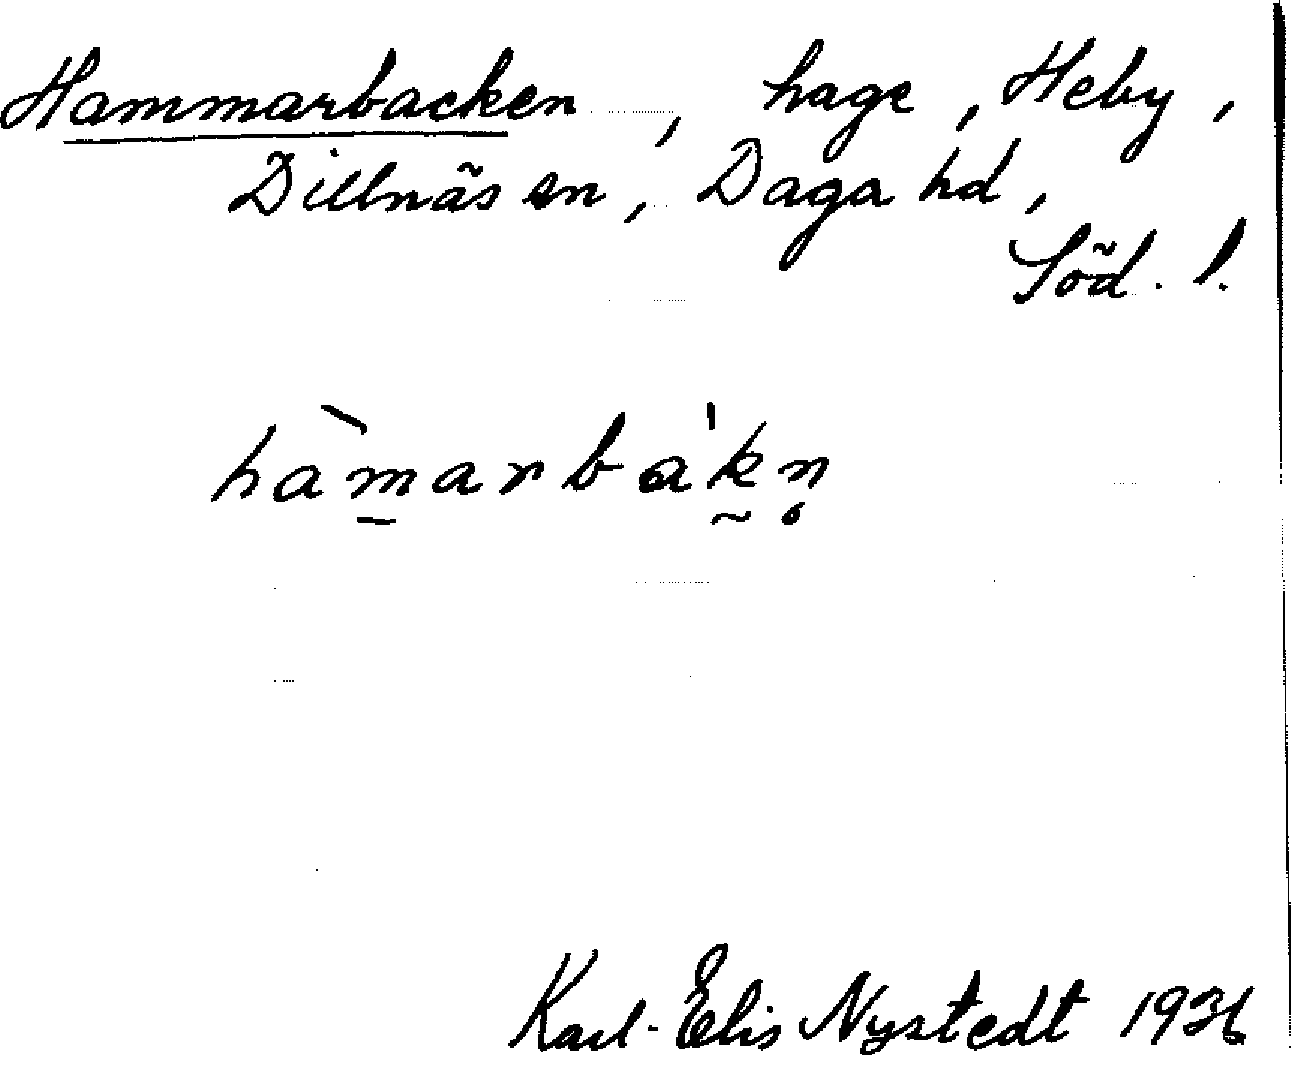 Hammarbacken, hage, Heby,
Dillnäs sn, Daga hd,
Söd. l.
hàm̱arbák̰n̥
Karl-Elis Nystedt 1936